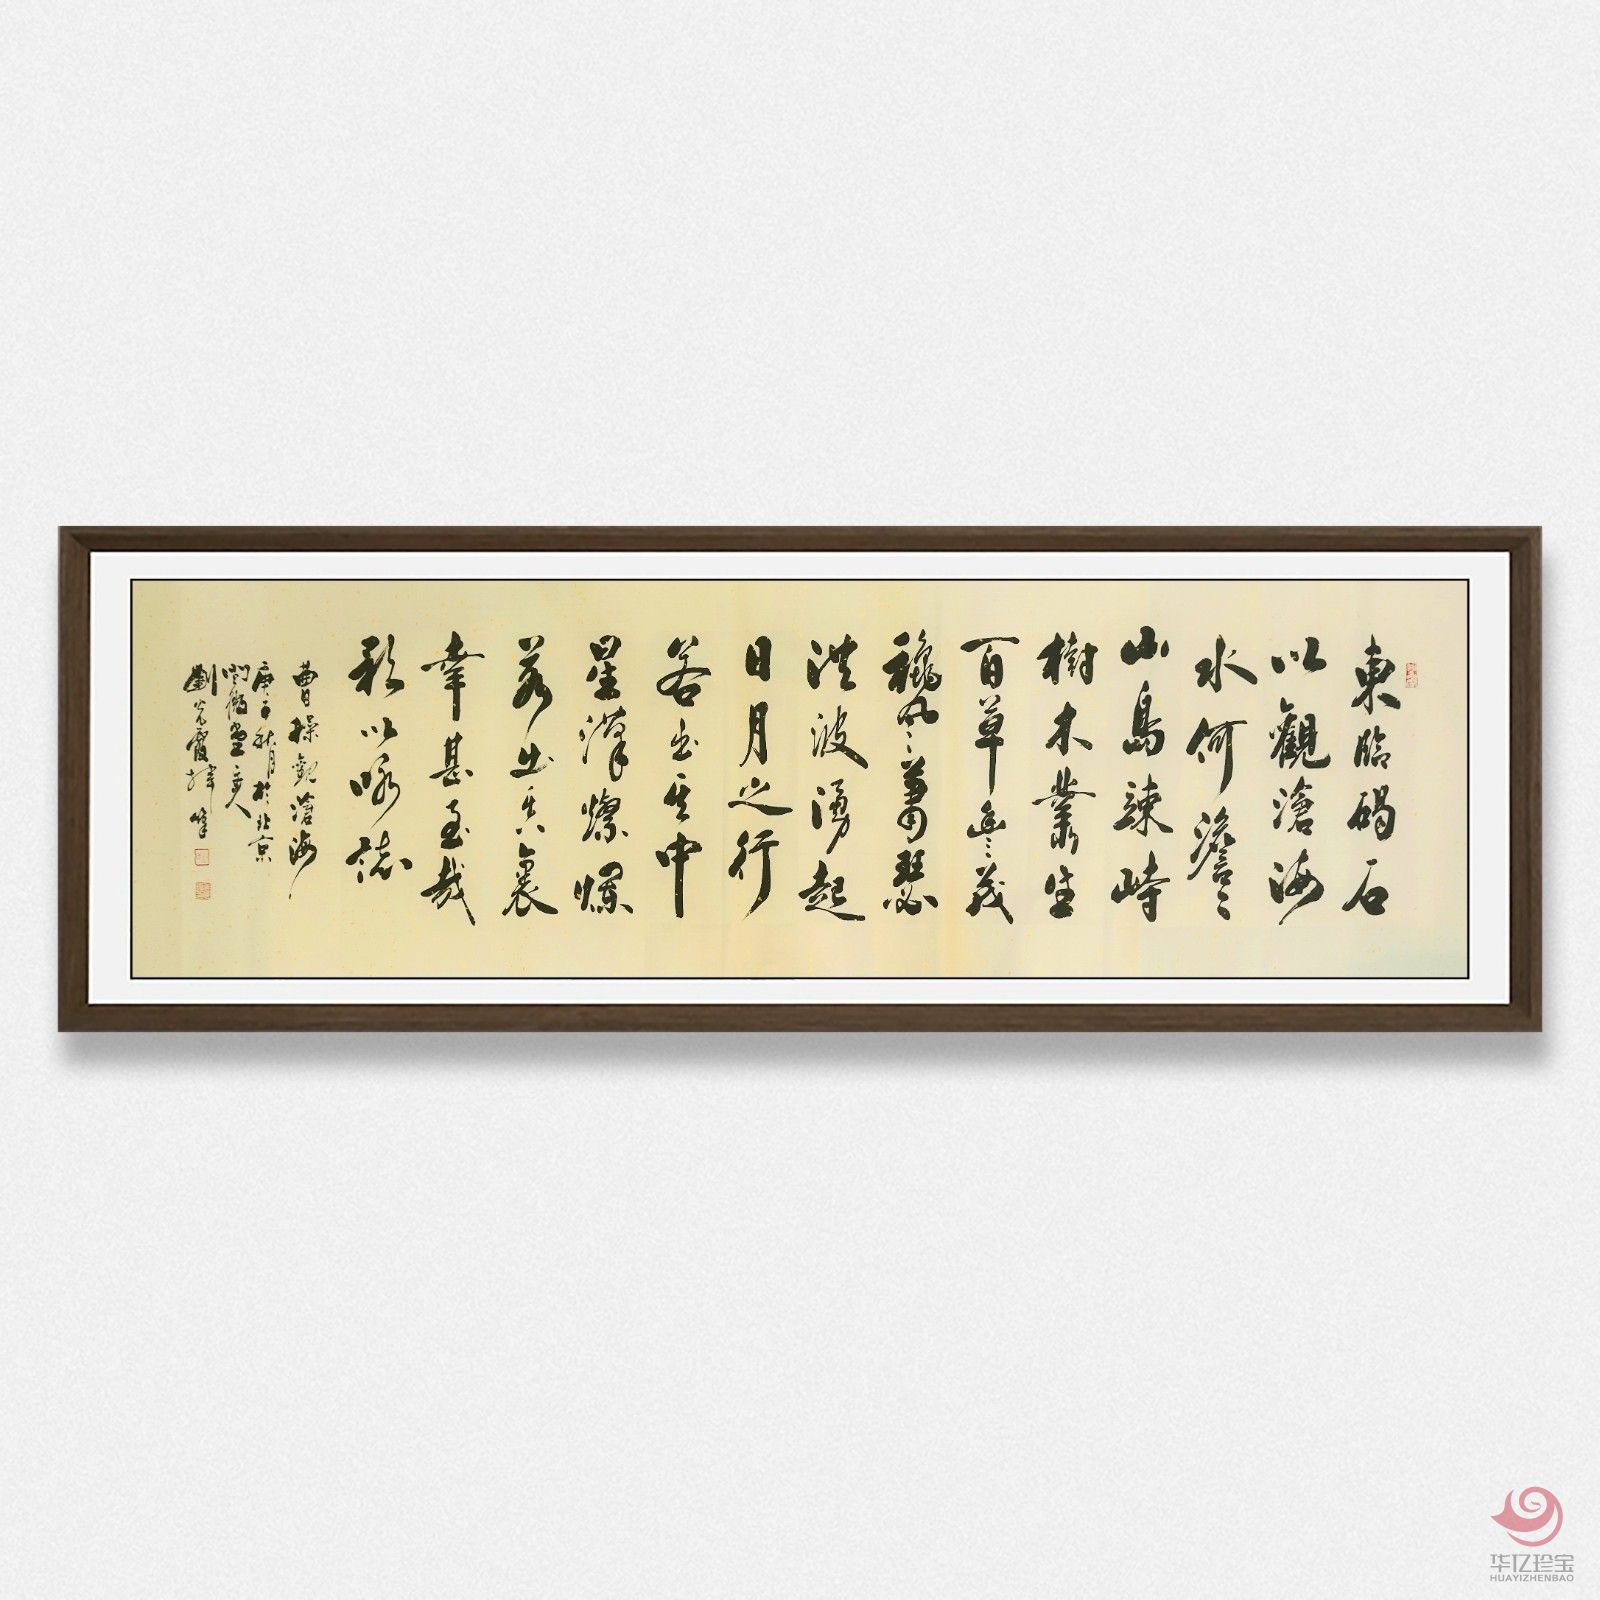 東臨碣石
以觀滄海
水何澹澹
山島竦峙
樹木叢生
百草豐茂
穐風蕭瑟
洪波湧起
日月之行
若出其中
星漢燦爛
若出其裏
幸甚至哉
歌以咏誌
曹操觀滄海
庚子秋月於北京
堂主人
劉光霞
华亿珍宝
HUAYIZHENBAO